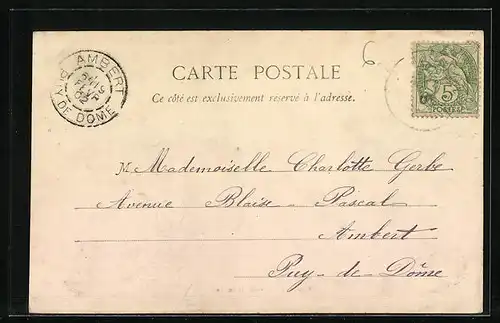 AMBERT
PUY-DE-DOME
6
CARTE POSTALE
Ce côté est exclusivement réservé à l'adresse.
5
M. Mademoiselle Charlotte Gerbe
Avenue Blaise-Pascal
Ambert
Puy-de-Dôme